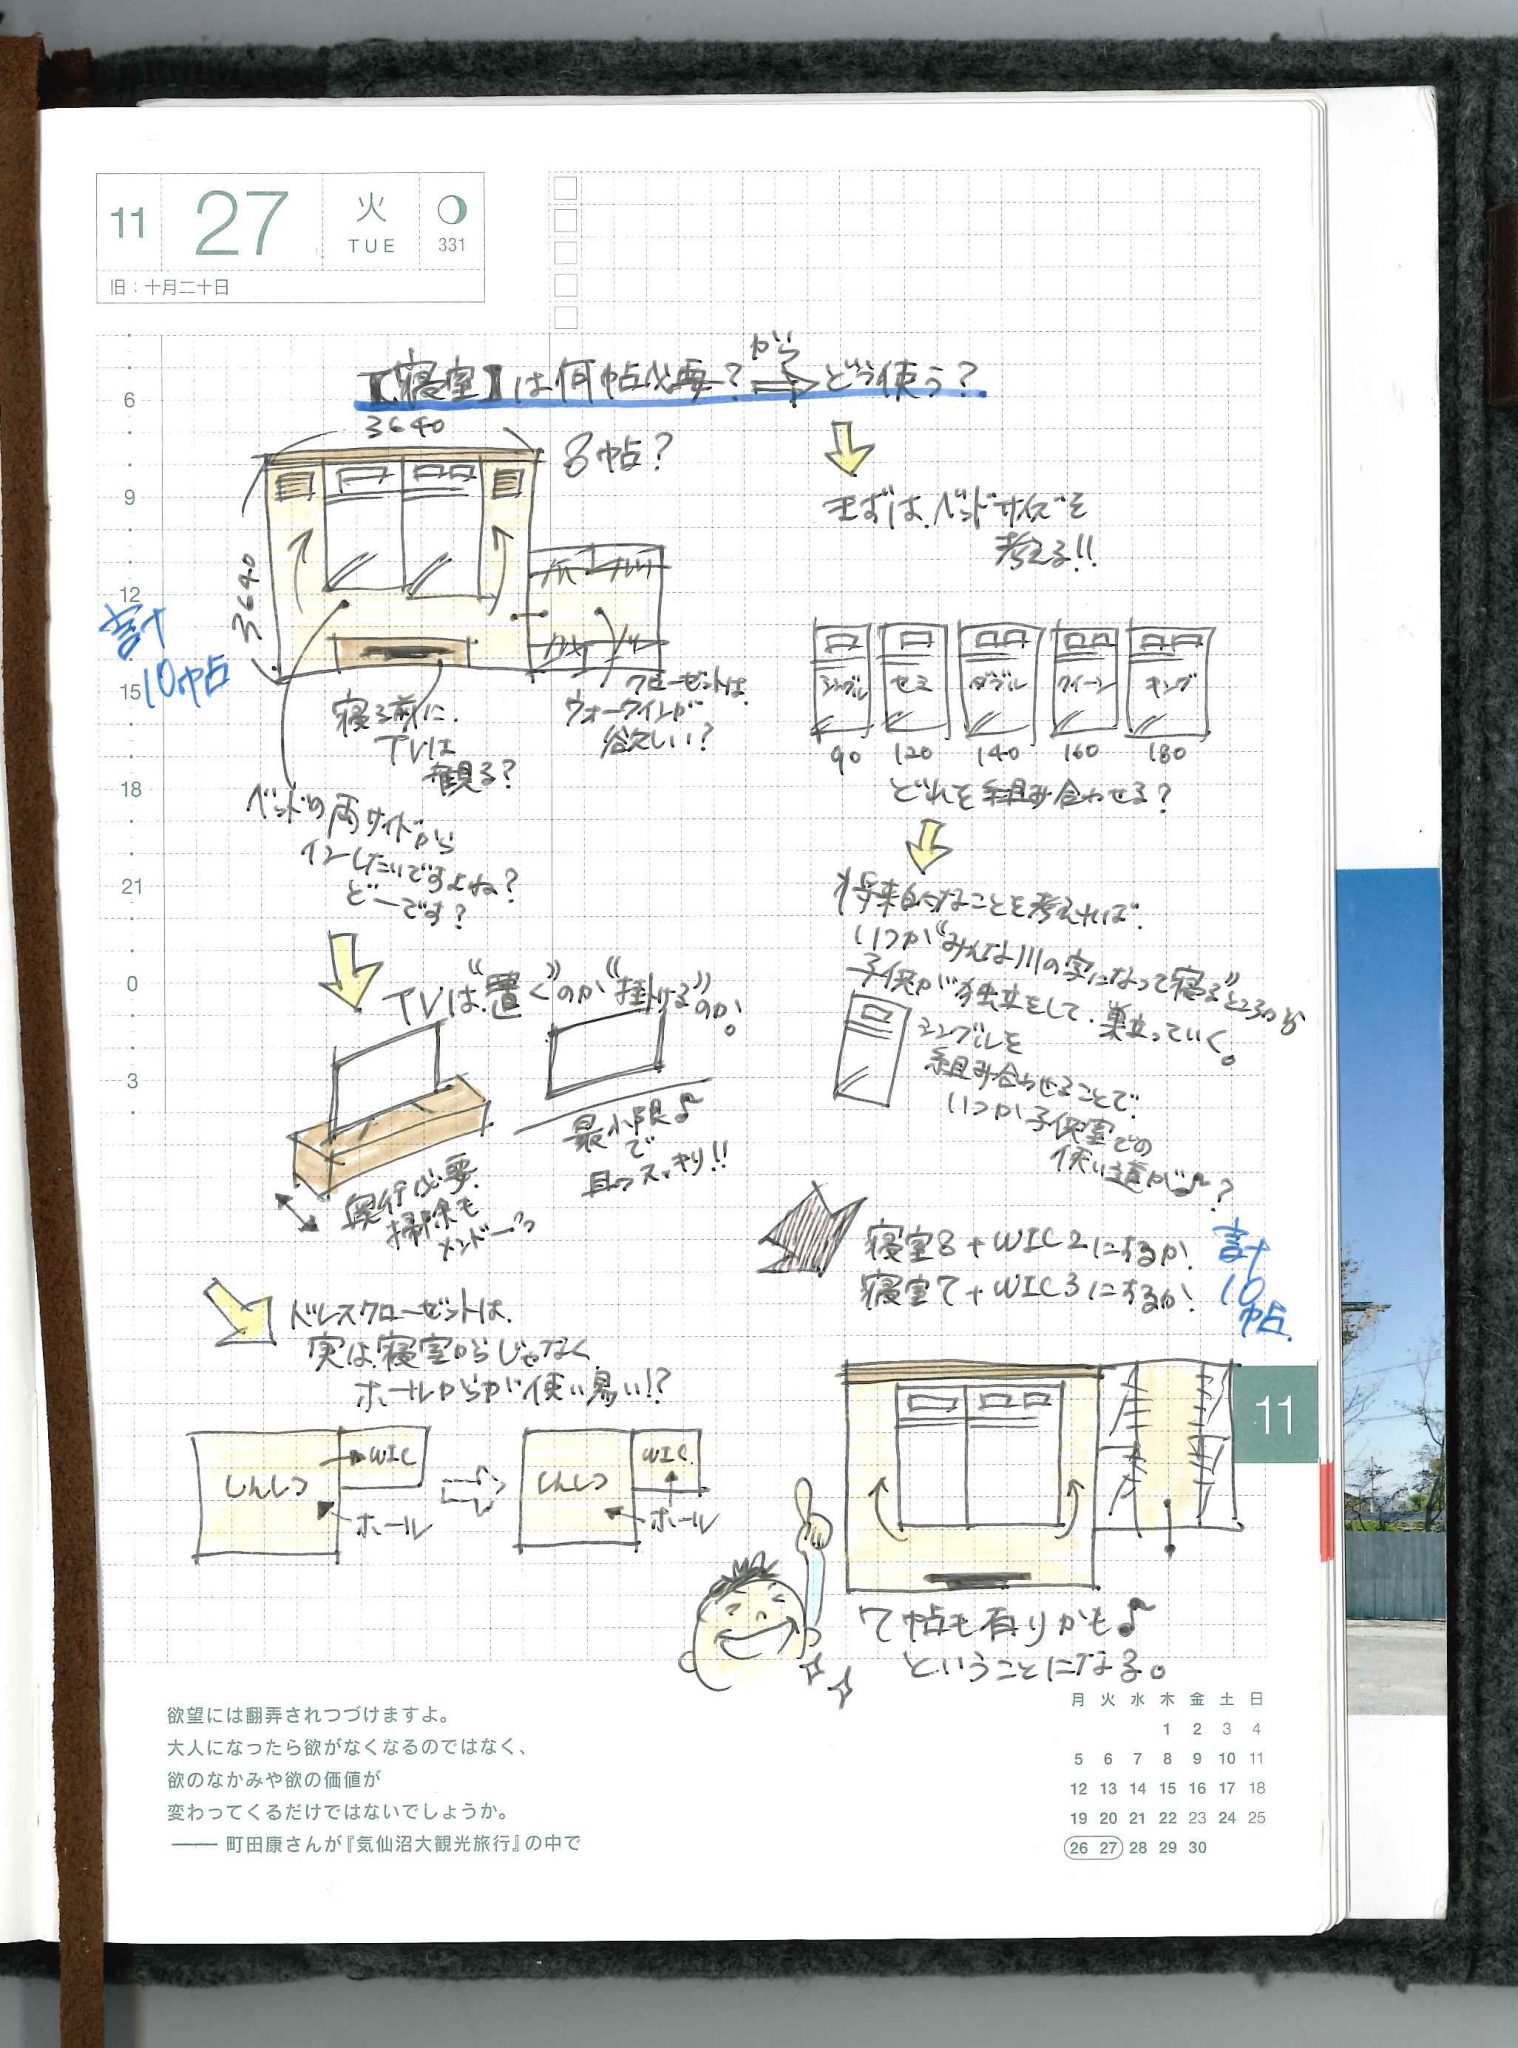 11
27
火
TUE
331
旧：十月二十日
6
9
12
15
18
21
0
3
【寝室】は何帖必要？から⇒どう使う？
3640
3640
8帖？
計
10帖
寝る前に
TVは
観る？
クローゼットは
ウォークインが
欲しい？
ベッドの両サイドから
インしたいですよね？
どーです？
まずはベッドサイズを
考える!!
シングル
セミ
ダブル
クイーン
キング
90
120
140
160
180
どれを組み合わせる？
将来的なことを考えれば
いつか“みんな川の字になって寝る”ところから
子供が独立をして、巣立っていく。
シングルを
組み合わせることで
いつか子供室での
使い道が♪？
TVは“置く”のか“掛ける”のか。
奥行必要
掃除も
メンドーっ
最小限♪
で
且つスッキリ!!
寝室8＋WIC2にするか
寝室7＋WIC3にするか
計
10
帖
ドレスクローゼットは
実は寝室からじゃなく
ホールからが使い易い!?
しんしつ
WIC
ホール
しんしつ
WIC
ホール
7帖も有りかも♪
ということになる。
11
欲望には翻弄されつづけますよ。
大人になったら欲がなくなるのではなく、
欲のなかみや欲の価値が
変わってくるだけではないでしょうか。
―― 町田康さんが『気仙沼大観光旅行』の中で
月 火 水 木 金 土 日
1 2 3 4
5 6 7 8 9 10 11
12 13 14 15 16 17 18
19 20 21 22 23 24 25
26 27 28 29 30